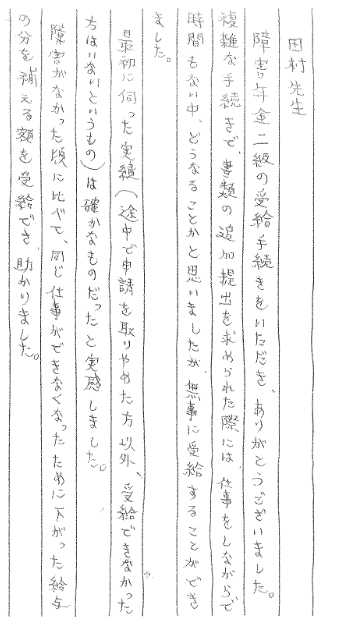 田村先生
障害年金二級の受給手続きをいただき、ありがとうございました。
複雑な手続きで、書類の追加提出を求められた際には、仕事をしながらで
時間もない中、どうなることかと思いましたが、無事に受給することができ
ました。
最初に伺った実績(途中で申請を取りやめた方以外、受給できなかった
方はいないというもの)は確かなものだったと実感しました。
障害がなかった頃に比べて、同じ仕事ができなくなったために下がった給与
の分を補える額を受給でき、助かりました。